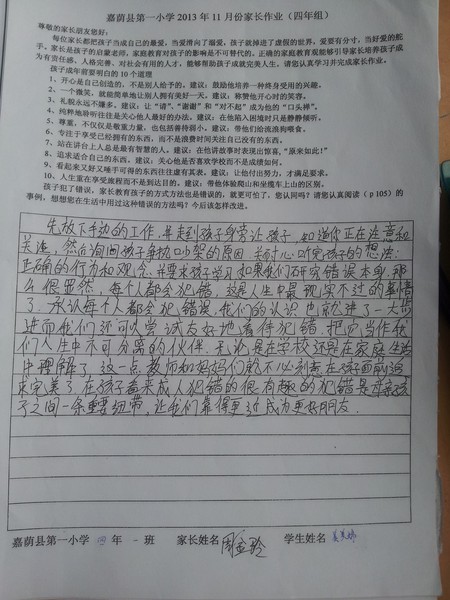 嘉荫县第一小学 2013 年 11 月份家长作业（四年组）
尊敬的家长朋友您好：
每位家长都把孩子当成自己的最爱，当爱滑向了溺爱，孩子就掉进了虚假的世界。爱要有分寸，当好爱的舵
手。家长是孩子的启蒙老师，家庭教育对孩子的影响是不可替代的。正确的家庭教育观能够引导家长培养孩子成
为有责任感、人格完善、对社会有用的人才，能够帮助孩子成就完美人生。请您认真学习并完成家长作业。
孩子成年前要明白的 10 个道理
1、开心是自己创造的，不是别人给予的。建议：鼓励他培养一种终身受用的兴趣。
2、一个微笑，就能简单地让别人拥有美好一天。建议：称赞他开心时的笑容。
3、礼貌永远不嫌多。建议：让“请”、“谢谢”和“对不起”成为他的“口头禅”。
4、纯粹地聆听往往是关心他人最好的办法。建议：在他陷入困境时只是静静倾听。
5、尊重，不仅仅是敬重力量，也包括善待弱小。建议：带他们给流浪狗喂食。
6、专注于享受已经拥有的东西，而不是浪费时间关注自己没有的东西。
7、站在讲台上人总是最有智慧的人。建议：在他讲故事时表现出惊喜，“原来如此！”
8、追求适合自己的东西。建议：关心他是否喜欢学校而不是成绩如何。
9、看起来又好又唾手可得的东西往往虚有其表。建议：让他付出努力，才满足要求。
10、人生重在享受旅程而不是到达目的。建议：带他体验爬山和坐缆车上山的区别。
孩子犯了错误，家长教育孩子的方式方法也是错误的，就更可怕了，您认同吗？请您认真阅读（p 105）的
事例，想想您在生活中用过这种错误的方法吗？今后该怎样改进。
先放下手边的工作，并走到孩子身旁让孩子，知道你正在注意和
关注，然后询问孩子争执吵架的原因 关耐心听完孩子的想法：
正确的行为和观念，并要求孩子学习如果我们研究错误本身，那
么很显然，每个人都会犯错，这是人生中最现实不过的事情
了。承认每个人都会犯错误，我们的认识也就进了一大步
进而我们还可以尝试友好地看待犯错，把它当作我
们人生中不可分离的伙伴，无论是在学校还是在家庭生活
中理解了这一点 教师和妈妈们就不必刻意在孩子面前追
求完美了 在孩子看来成人犯错的很有趣的犯错是母亲孩
子之间一条重要纽带，让我们靠得更近成为更好朋友．
嘉荫县第一小学 四 年 一 班 家长姓名 学生姓名